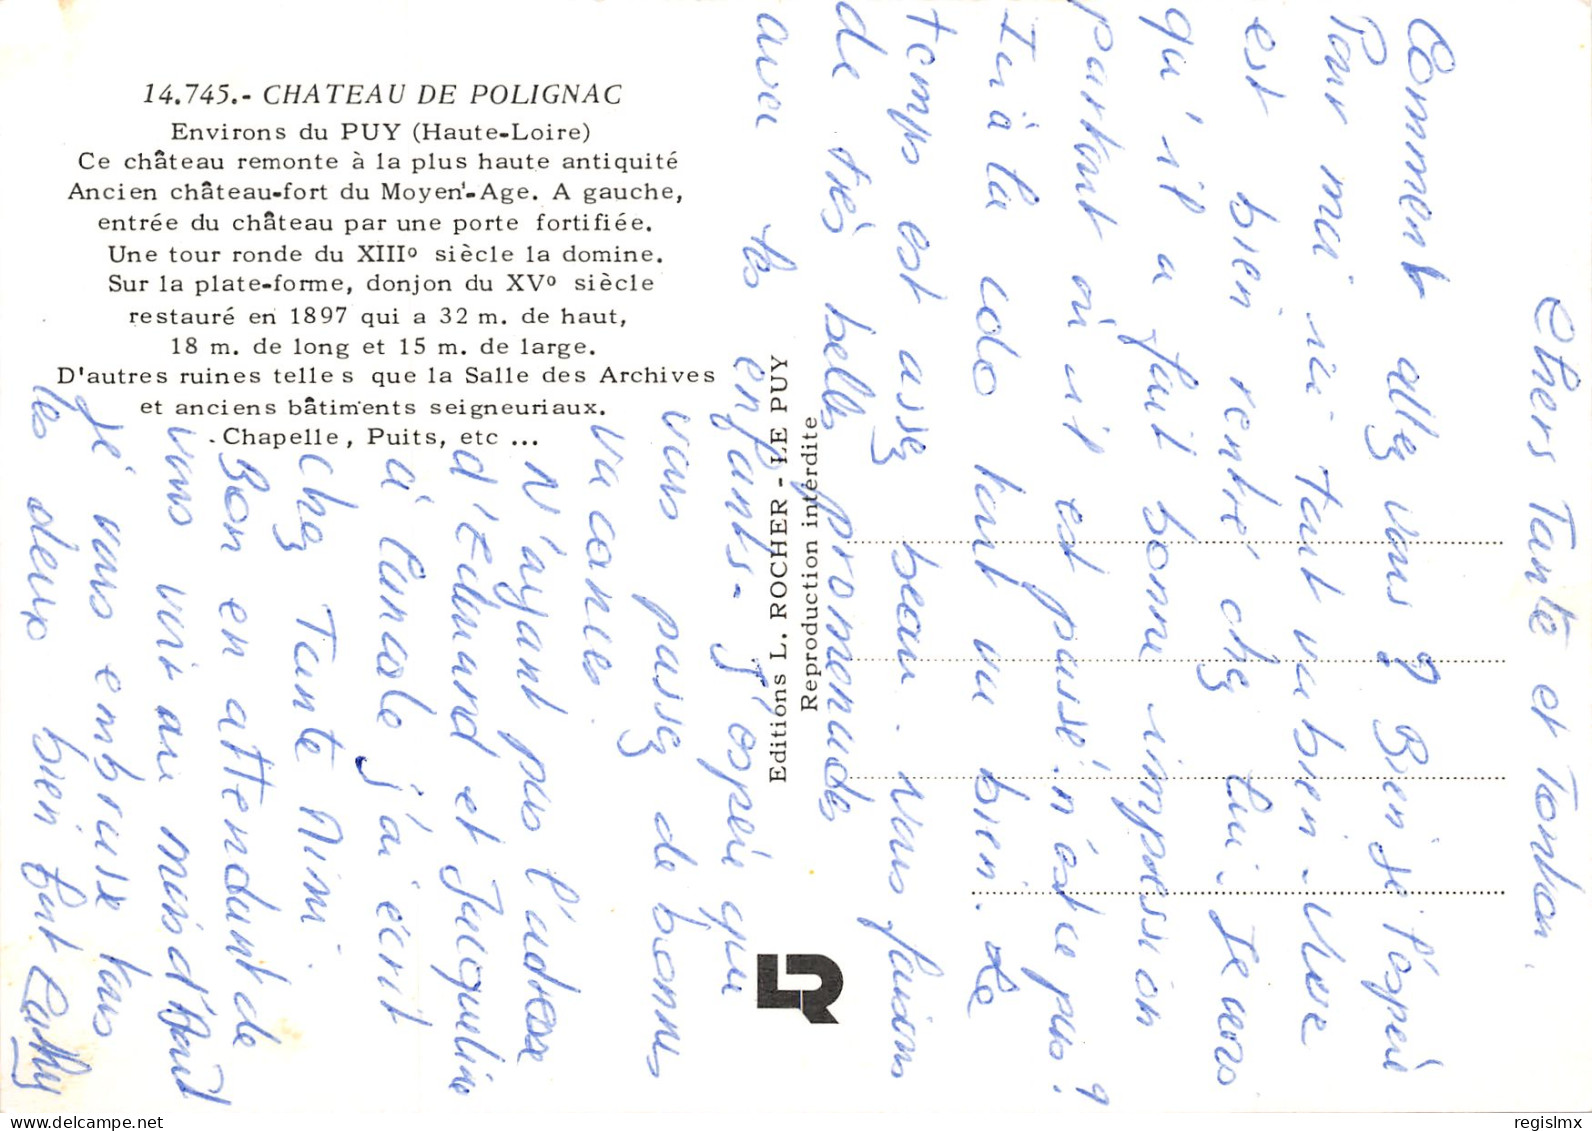 14.745.- CHATEAU DE POLIGNAC
Environs du PUY (Haute-Loire)
Ce château remonte à la plus haute antiquité
Ancien château-fort du Moyen'-Age. A gauche,
entrée du château par une porte fortifiée.
Une tour ronde du XIIIº siècle la domine.
Sur la plate-forme, donjon du XVº siècle
restauré en 1897 qui a 32 m. de haut,
18 m. de long et 15 m. de large.
D'autres ruines telles que la Salle des Archives
et anciens bâtiments seigneuriaux.
Chapelle, Puits, etc ...
Editions L. ROCHER - LE PUY
Reproduction intérdite
LR
Chers Tante et Tonton
Comment allez vous ? Bien je l'espère
Pour moi ici tout va bien -
est bien rentré chez lui. Je crois
qu'il a fait bonne impression
partout où il est passé. n'est ce pas ?
Ici à la colo tout va bien. Le
temps est assez beau. nous faisons
de très belles promenades
avec les enfants - J'espère que
vous passez de bonnes
vacances
N'ayant pas l'adresse
d'Edmond et Jacqueline
à Cancale j'ai écrit
chez Tante Nini
Bon en attendant de
vous voir au mois d'Août
je vous embrasse tous
les deux bien fort Cathy
regislmx